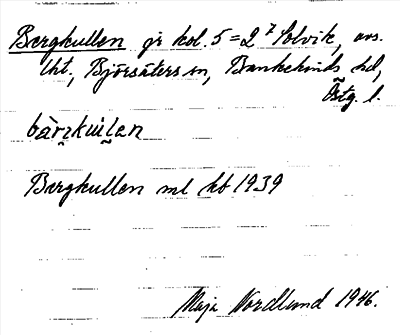 Bergkullen gs kol. 5 = 2⁷ Solvik, avs.
lht., Björsäters sn, Bankekinds hd,
Östg. l.
bàrʒkulen
Bergkullen ml kb 1939
Maja Nordlund 1946.